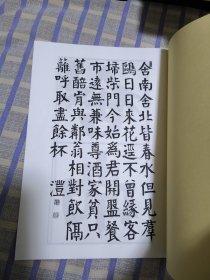 舍南舍北皆春水但見羣
鷗日日來花逕不曾緣客
埽柴門今始為君開盤餐
市遠無兼味尊酒家貧只
舊醅肯與鄰翁相對飲隔
籬呼取盡餘杯
灃